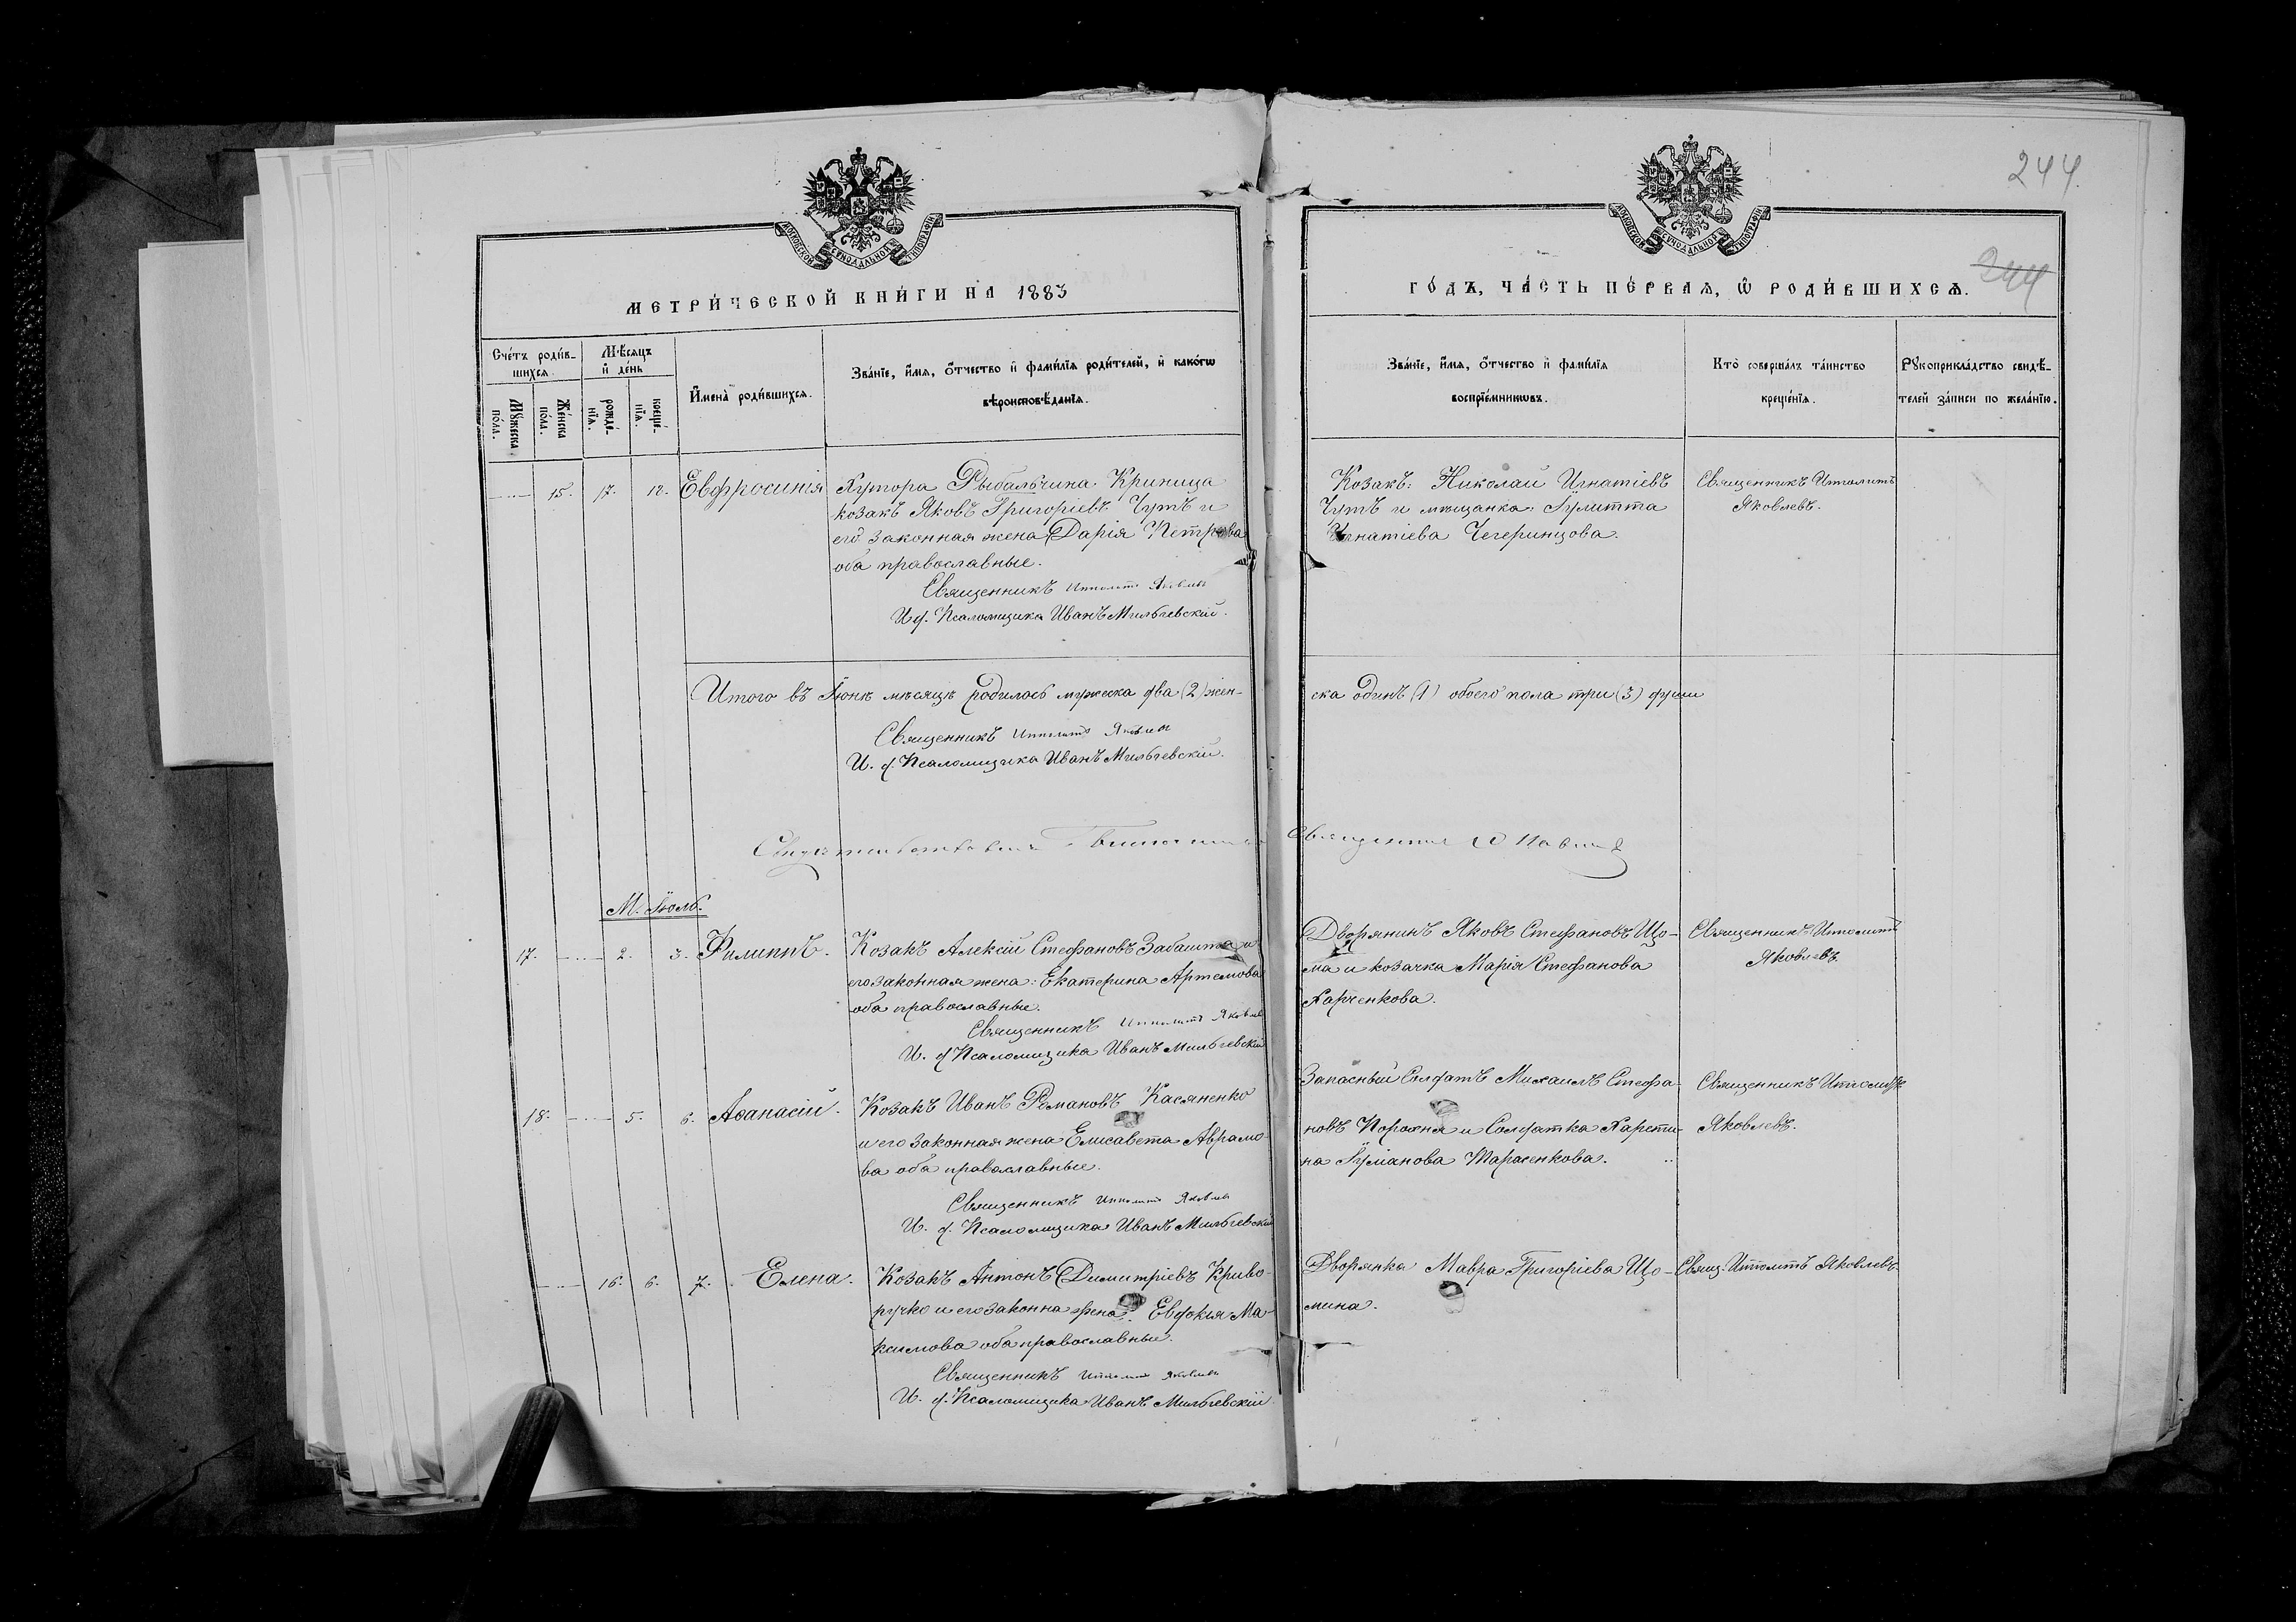 244.
244
МОСКОВСКОЙ СѴНОДАЛЬНОЙ ТИПОГРАФІИ
МОСКОВСКОЙ СѴНОДАЛЬНОЙ ТИПОГРАФІИ
МЕТРИ́ЧЕСКОЙ КНИ́ГИ НА 1883
ГО́ДЪ, ЧА́СТЬ ПЕ́РВАЯ, Ѡ҆ РОДИ́ВШИХСѦ.
Сче́тъ роди́в-
шихсѧ.
Мѣ́сѧцъ
и҆ де́нь
Мꙋ́жеска
по́ла.
Же́нска
по́ла.
рожде́-
нїѧ.
креще́-
нїѧ.
И҆мена̀ роди́вшихсѧ.
Зва́нїе, и҆́мѧ, ѻ҆́тчество и҆ фами́лїѧ роди́телей, и҆ како́гѡ
вѣроисповѣ́данїѧ.
Зва́нїе, и҆́мѧ, ѻ҆́тчество и҆ фами́лїѧ
воспрїе́мникѡвъ.
Кто̀ соверша́лъ та́инство
креще́нїѧ.
Рꙋкоприкла́дство свидѣ́-
телей за́писи по жела́нїю.
15. 17. 18. Евфросинія
Хутора Рыбальчина Криница
козакъ Яковъ Григоріевъ Чутъ и
его законная жена Дарія Петрова
оба православные.
Священникъ Ипполитъ Яковлев
И. д. Псаломщика Иванъ Мильгевскій.
Козакъ: Николай Игнатіевъ
Чутъ и мещанка: Іулитта
Игнатіева Чегеринцова.
Священникъ Ипполитъ
Яковлевъ.
Итого въ Іюнѣ мѣсяцѣ родилось мужеска два (2) жен-
ска одинъ (1) обоего пола три (3) души
Священникъ Ипполитъ Яковлев
И. д. Псаломщика Иванъ Мильгевскій.
Священник
М. Іюль.
17. 2. 3. Филиппъ.
Козакъ Алексій Стефановъ Забашта и
его законная жена: Екатерина Артемова
оба православные.
Священникъ Ипполитъ Яковлев
И. д. Псаломщика Иванъ Мильгевскій
Дворянинъ Яковъ Стефановъ Що-
ма и козачка Марія Стефанова
Харченкова.
Священникъ Ипполитъ
Яковлевъ.
18. 5. 6. Аѳанасій.
Козакъ Иванъ Романовъ Касяненко
и его законная жена Елисавета Аврамо-
ва оба православные.
Священникъ Ипполитъ Яковлев
И. д. Псаломщика Иванъ Мильгевскій
Запасный Солдатъ Михаилъ Стефа-
новъ Порохня и Солдатка Харети-
на Іуліанова Тарасенкова.
Священникъ Ипполитъ
Яковлевъ.
16. 6. 7. Елена.
Козакъ Антонъ Димитріевъ Криво-
ручко и его законна жена: Евдокія Ма-
ксимова оба православные.
Священникъ Ипполитъ Яковлев
И. д. Псаломщика Иванъ Мильгевскій
Дворянка Мавра Григоріева Що-
мина.
Свящ. Ипполитъ Яковлевъ.